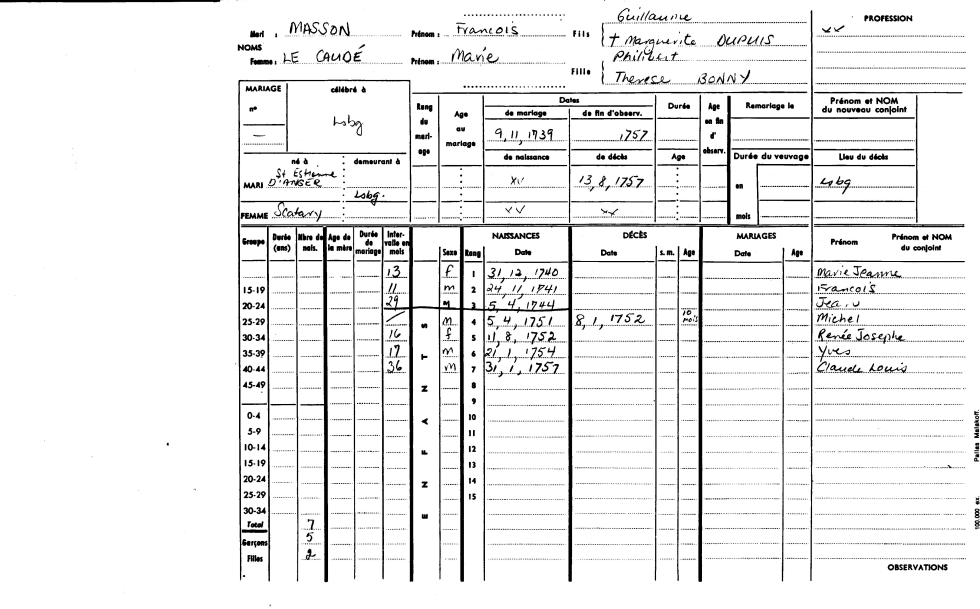 Guillaume
PROFESSION
Mari : MASSON Prénom : Francois Fils { † Marguerite DUPUIS
NOMS
Femme : LE CAUDÉ Prénom : Marie Fille { Philibert
Therese BONNY
MARIAGE célébré à
n° Lsbg
—
Rang du mari-age
Age au mariage
Dates
de mariage de fin d'observ.
9, 11, 1739 , 1757
de naissance de décès
Durée
Age
Age en fin d' observ.
Remariage le
Durée du veuvage
en
mois
Prénom et NOM du nouveau conjoint
Lieu du décès
né à demeurant à
MARI St Estienne D'ANGER Lsbg. xv 13, 8, 1757 Lsbg
FEMME Scatary xv xv
Groupe Durée (ans) Nbre de nais. Age de la mère Durée de mariage Inter-valle en mois
ENFANTS
Sexe Rang NAISSANCES Date DÉCÈS Date s. m. Age MARIAGES Date Age Prénom Prénom et NOM du conjoint
13 f 1 31, 12, 1740 Marie Jeanne
15-19 11 m 2 24, 11, 1741 Francois
20-24 29 M 3 5, 4, 1744
25-29 / m 4 5, 4, 1751 8, 1, 1752 10 mois Michel
30-34 16 f 5 11, 8, 1752 Renée Josephe
35-39 17 m 6 21, 1, 1754 Yves
40-44 36 m 7 31, 1, 1757 Claude Louis
45-49 8
9
0-4 10
5-9 11
10-14 12
15-19 13
20-24 14
25-29 15
30-34
Total 7
Garçons 5
Filles 2
OBSERVATIONS
100 000 ex. Paillas Malakoff.